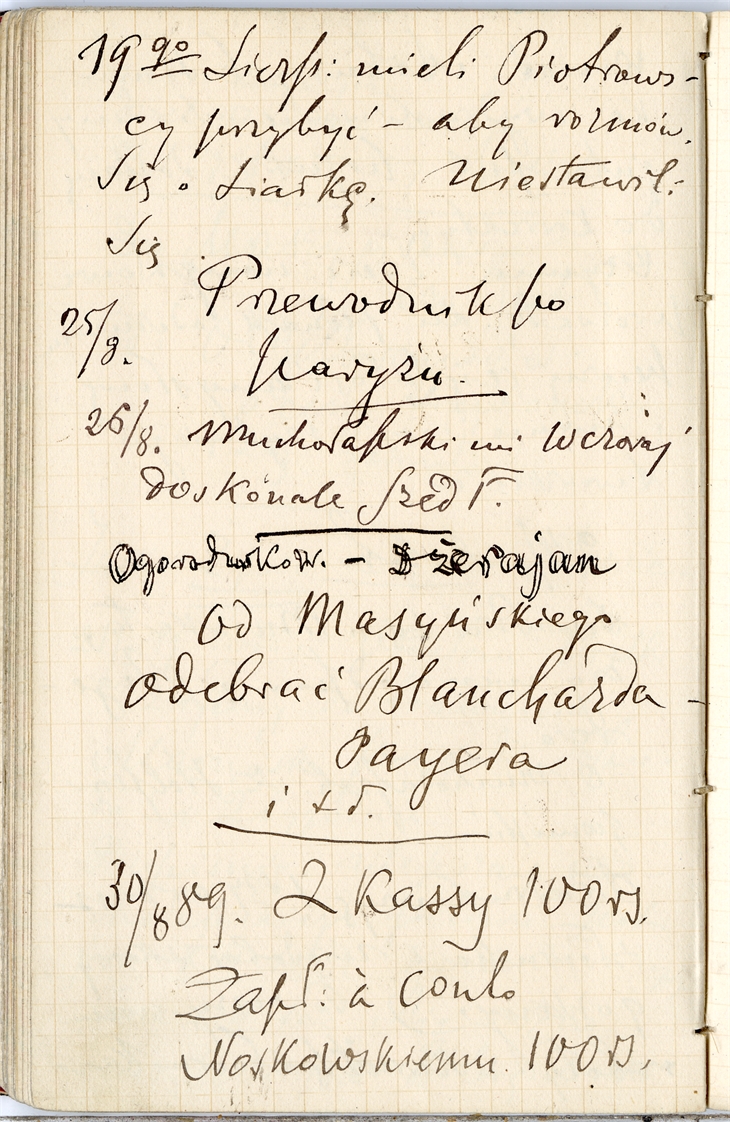 19go Sierp: mieli Piotrows-
cy przybyć – aby rozmów.
się o Siarkę. Niestawil:
się
Przewodnik po
25/8. paryżu.
26/8. Muchołapski mi wczoraj
doskonale szedł.
Ogorodnikow. – Dżerajan
od Masyńskiego
odebrać Blancharda –
Payera
i t.d.
30/8 89. Z Kassy 100 rs.
Zapł: à conto
Noskowskiemu. 100 rs.